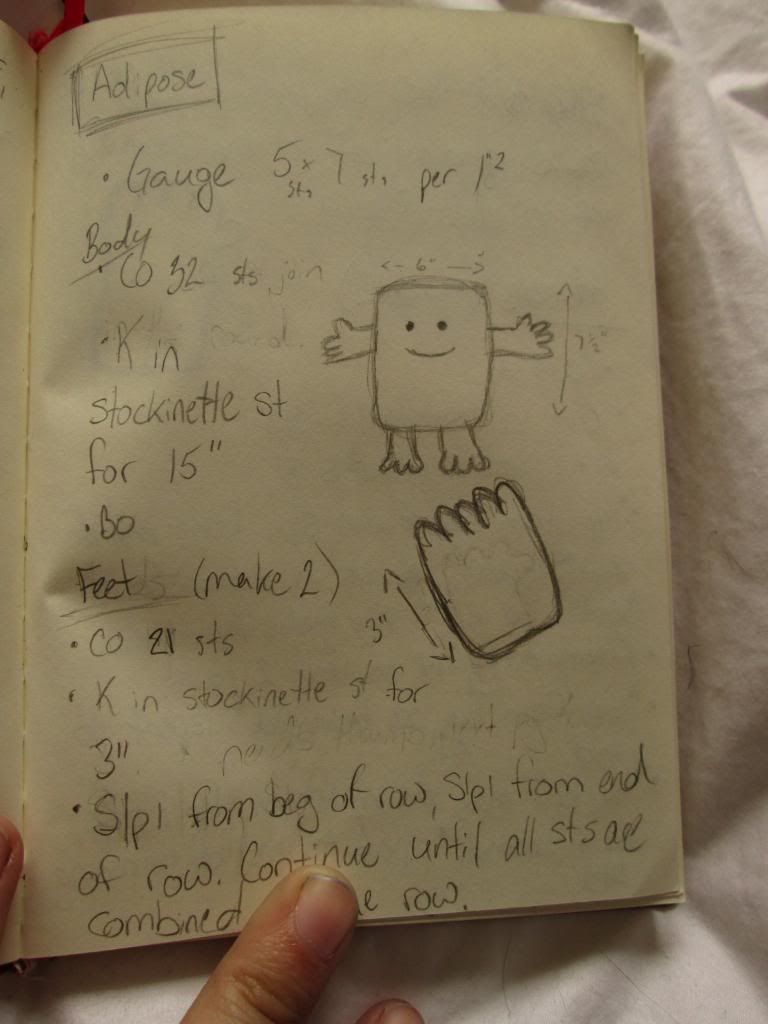 Adipose
• Gauge 5 sts x 7 sts per 1"²
Body
• CO 32 sts join
6"
• K in round.
7½"
stockinette st
for 15"
• BO
Feet (make 2)
3"
• CO 21 sts
• K in stockinette st for
3"
• Slp1 from beg of row, Slp1 from end
of row. Continue until all sts are
combined row.